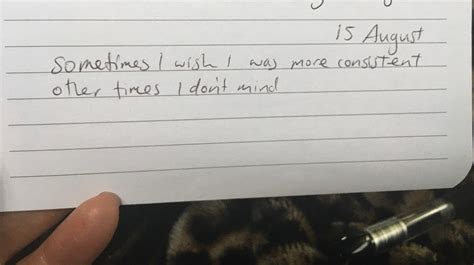 15 August
Sometimes I wish I was more consistent
other times I don't mind